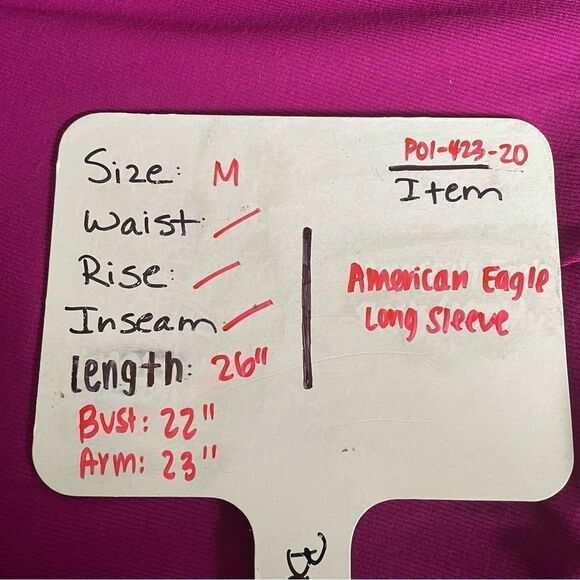 Size: M
Waist: /
Rise: /
Inseam /
length: 26"
Bust: 22"
Arm: 23"
P01-423-20
Item
American Eagle
Long Sleeve